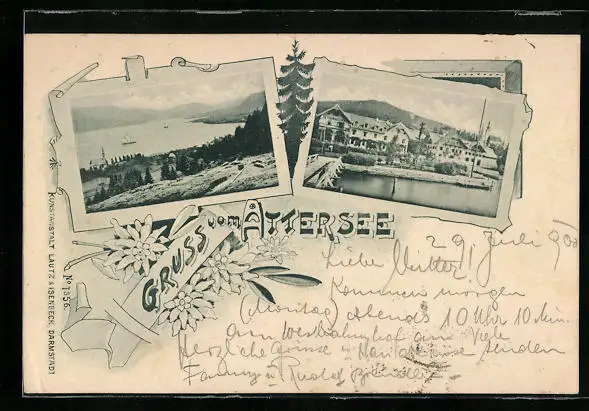 GRUSS vom ATTERSEE
29. Juli 900
Liebe Mutter!
Kommen morgen
(Montag) abends 10 Uhr 10 Min.
am Westbahnhof an. Viele
Herzliche Grüsse u senden
Fanny u Rudolf
KUNSTANSTALT LAUTZ & ISENBECK, DARMSTADT
No 7356.